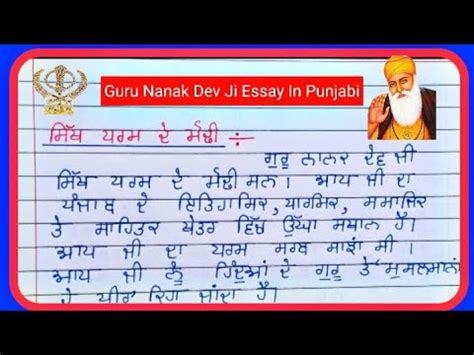 Guru Nanak Dev Ji Essay In Punjabi
ਸਿੱਖ ਧਰਮ ਦੇ ਮੋਢੀ ÷
ਗੁਰੂ ਨਾਨਕ ਦੇਵ ਜੀ
ਸਿੱਖ ਧਰਮ ਦੇ ਮੋਢੀ ਸਨ। ਆਪ ਜੀ ਦਾ
ਪੰਜਾਬ ਦੇ ਇਤਿਹਾਸਿਕ, ਧਾਰਮਿਕ, ਸਮਾਜਿਕ
ਤੇ ਸਾਹਿਤਕ ਖੇਤਰ ਵਿੱਚ ਉੱਘਾ ਸਥਾਨ ਹੈ।
ਆਪ ਜੀ ਦਾ ਧਰਮ ਸਰਬ ਸਾਂਝਾ ਸੀ।
ਆਪ ਜੀ ਨੂੰ ਹਿੰਦੂਆਂ ਦੇ ਗੁਰੂ ਤੇ 'ਮੁਸਲਮਾਨਾਂ
ਦੇ ਪੀਰ' ਕਿਹਾ ਜਾਂਦਾ ਹੈ।